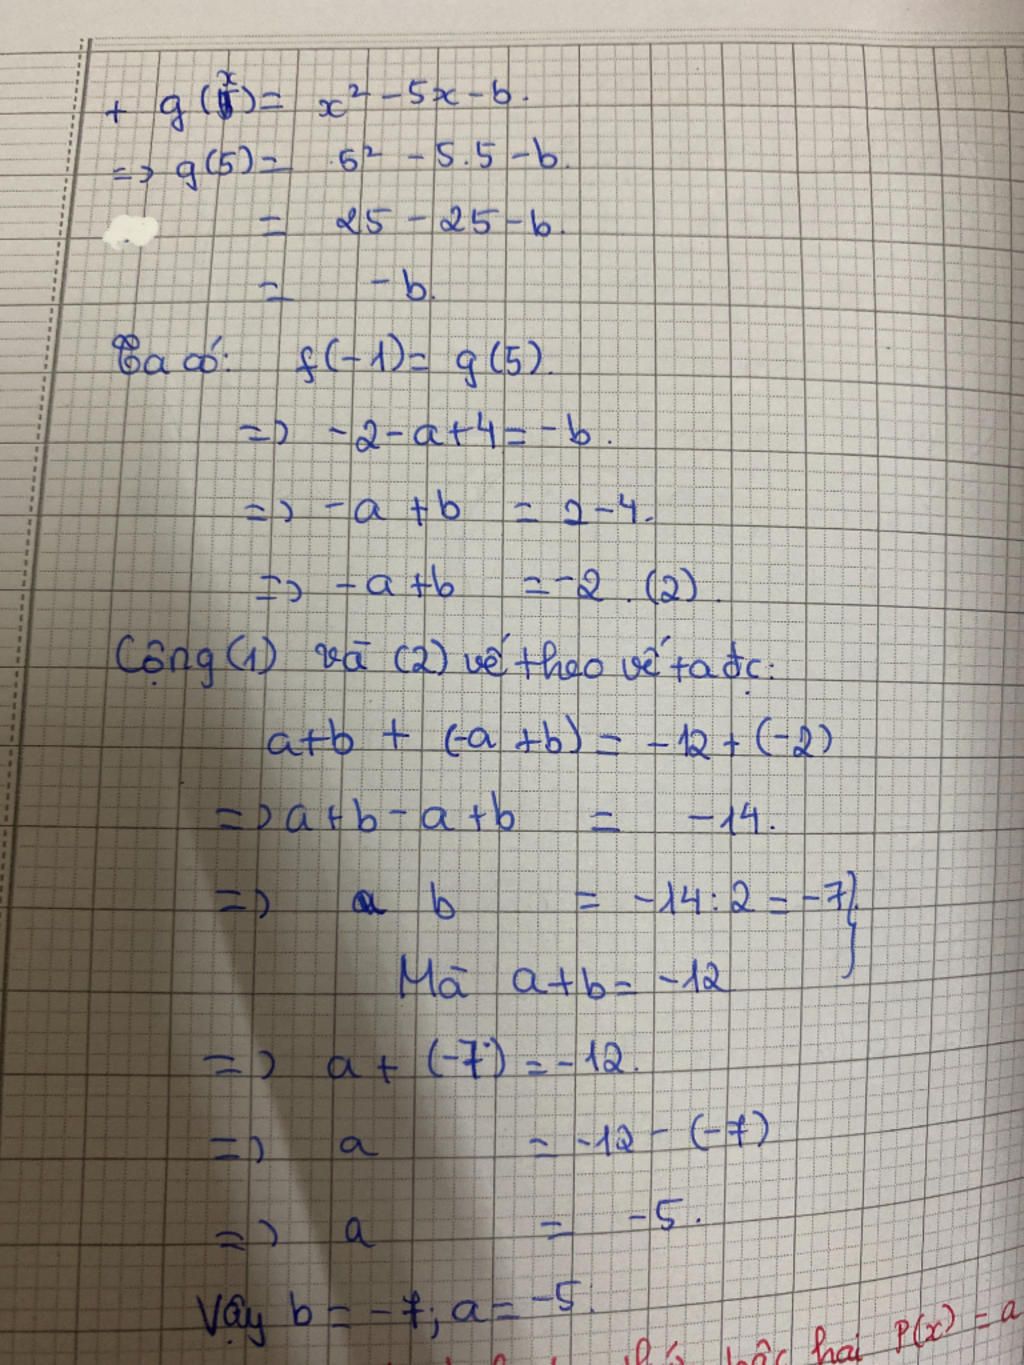 + g(x) = x² - 5x - b.
=> g(5) = 5² - 5.5 - b.
= 25 - 25 - b.
= - b.
Ta có: f(-1) = g(5).
=> -2 - a + 4 = -b.
=> -a + b = 2 - 4.
=> -a + b = -2. (2).
Cộng (1) và (2) vế theo vế ta đc:
a + b + (-a + b) = -12 + (-2)
=> a + b - a + b = -14.
=> b = -14 : 2 = -7 }
Mà a + b = -12
=> a + (-7) = -12.
=> a = -12 - (-7)
=> a = -5.
Vậy b = -7; a = -5.
hai P(x) = a